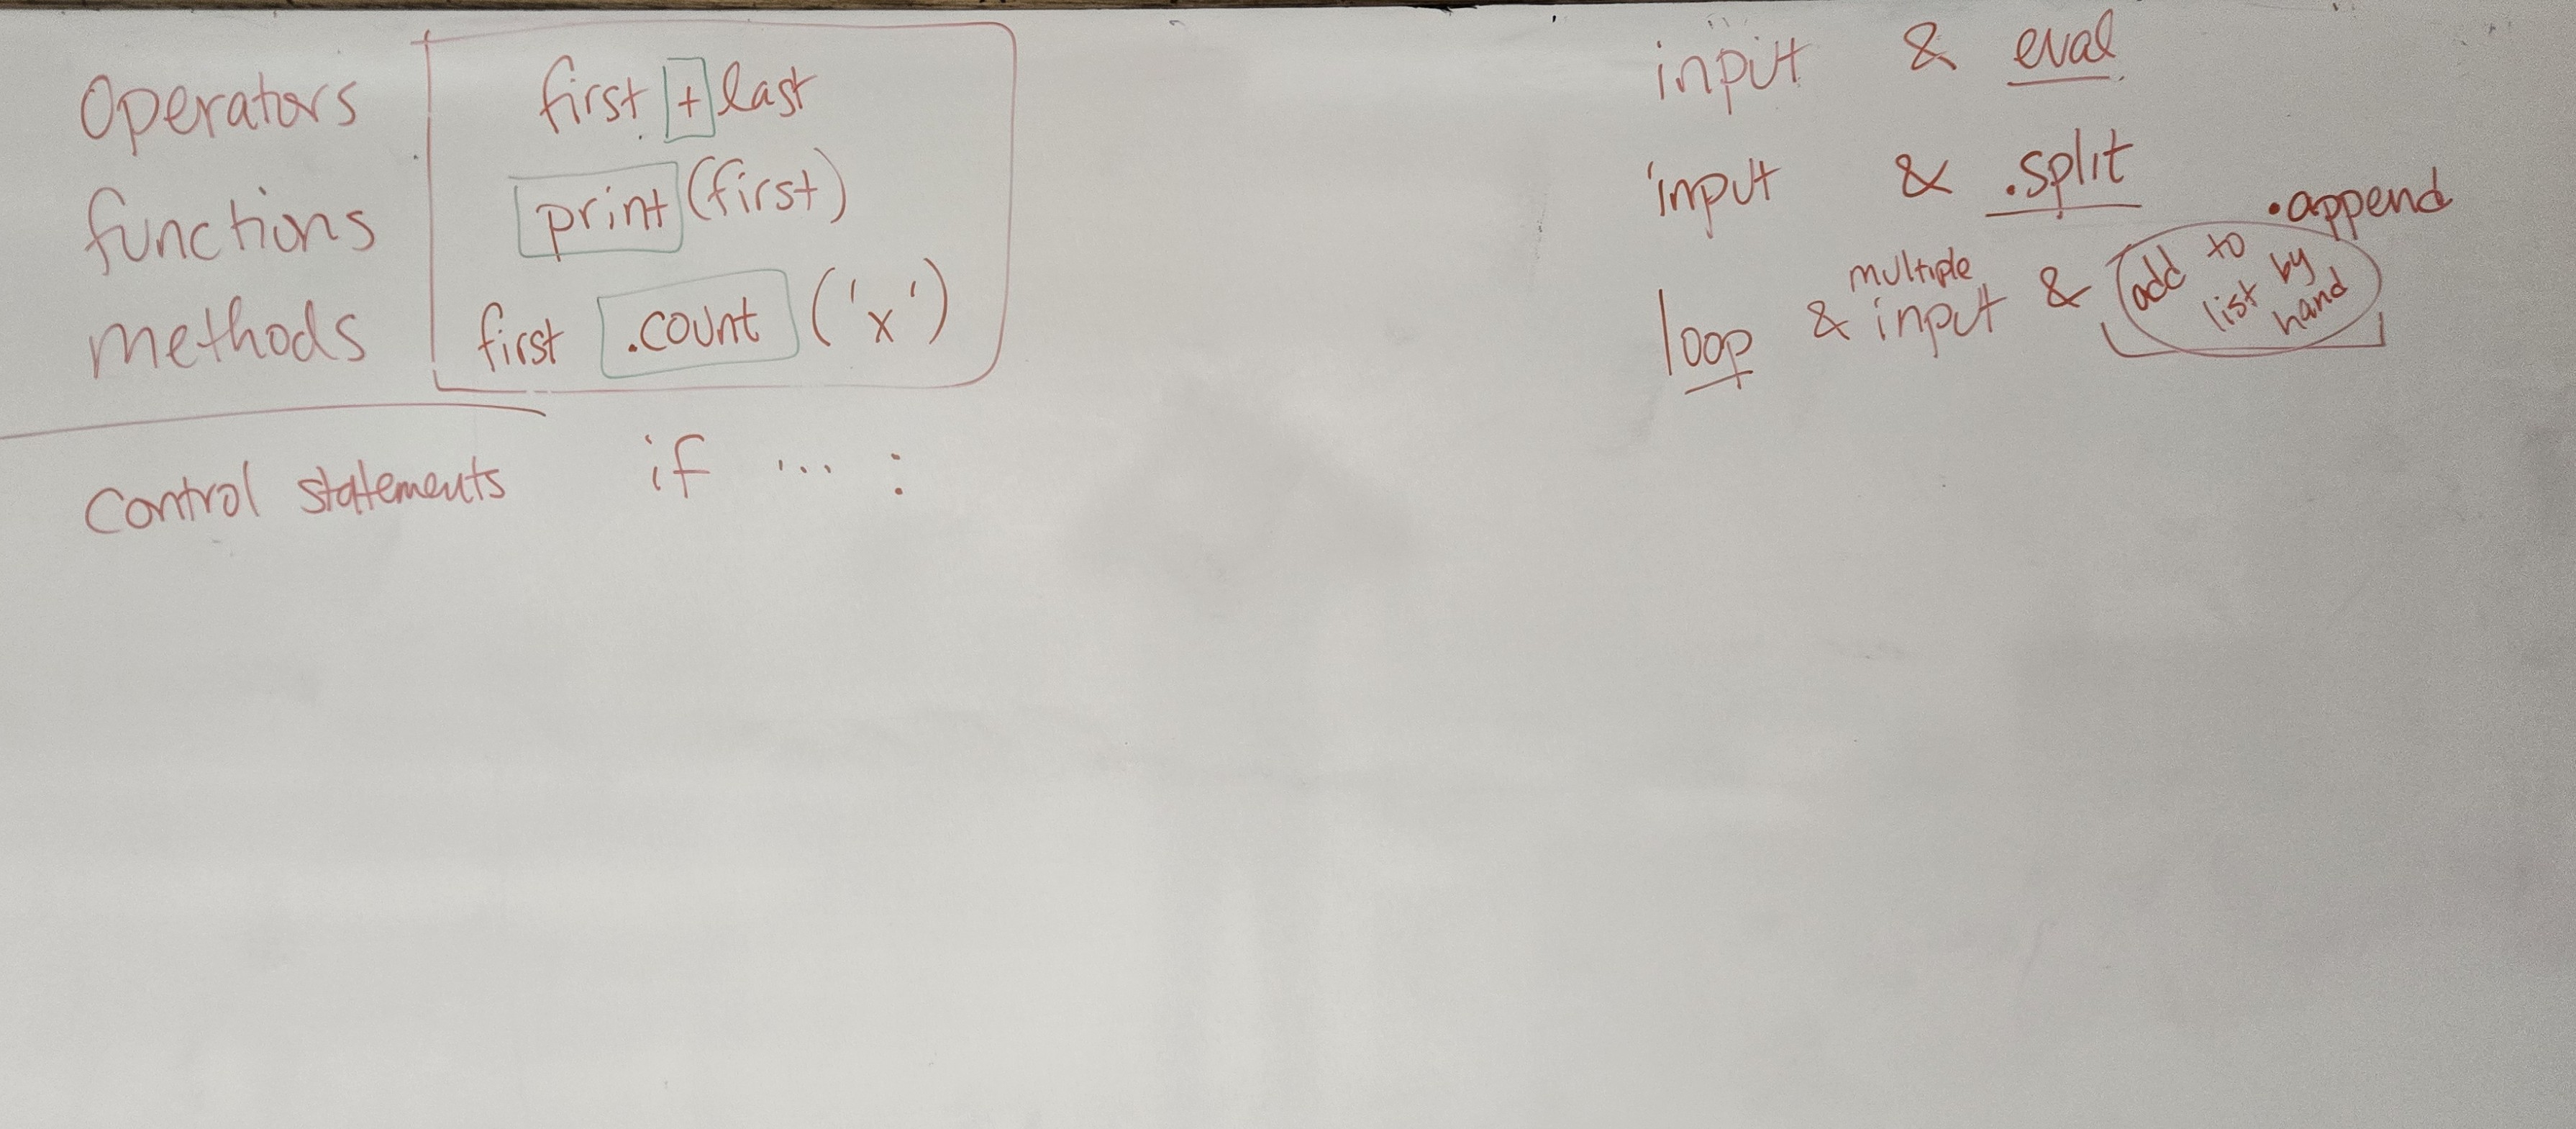 Operators first + last
functions print (first)
methods first .count ('x')
Control statements if ... :
input & eval
input & .split
.append
multiple
loop & input & add to
list by
hand